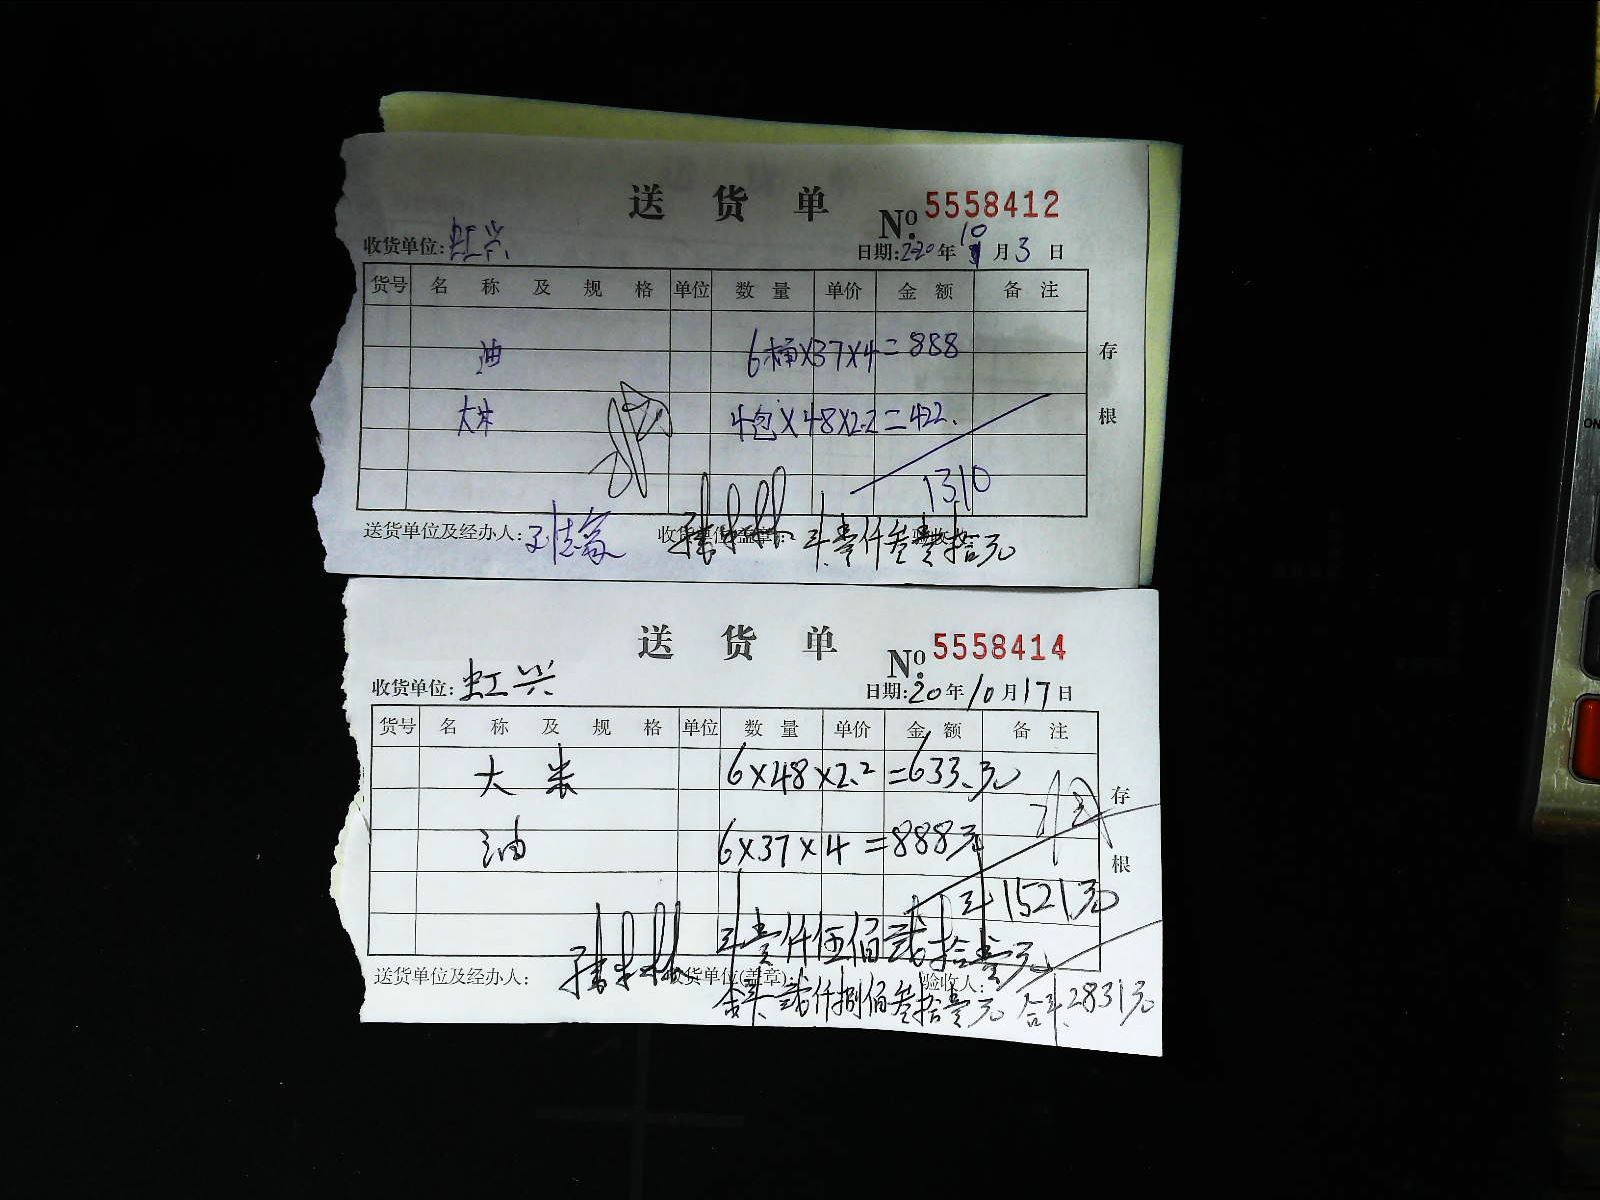 送货单
No. 5558412
收货单位: 虹兴 日期: 2020年10月3日
货号 名称及规格 单位 数量 单价 金额 备注
油 6桶×37×4=888
大米 4包×48×2.2=422.
1310
存根
送货单位及经办人: 收货单位(盖章): 计壹仟叁佰壹拾元
送货单
No. 5558414
收货单位: 虹兴 日期: 20年10月17日
货号 名称及规格 单位 数量 单价 金额 备注
大米 6×48×2.2=633.元
油 6×37×4=888元
计1521元
存根
计壹仟伍佰贰拾壹元
送货单位及经办人: 收货单位(盖章): 验收人:
合计: 贰仟捌佰叁拾壹元 合计: 2831元